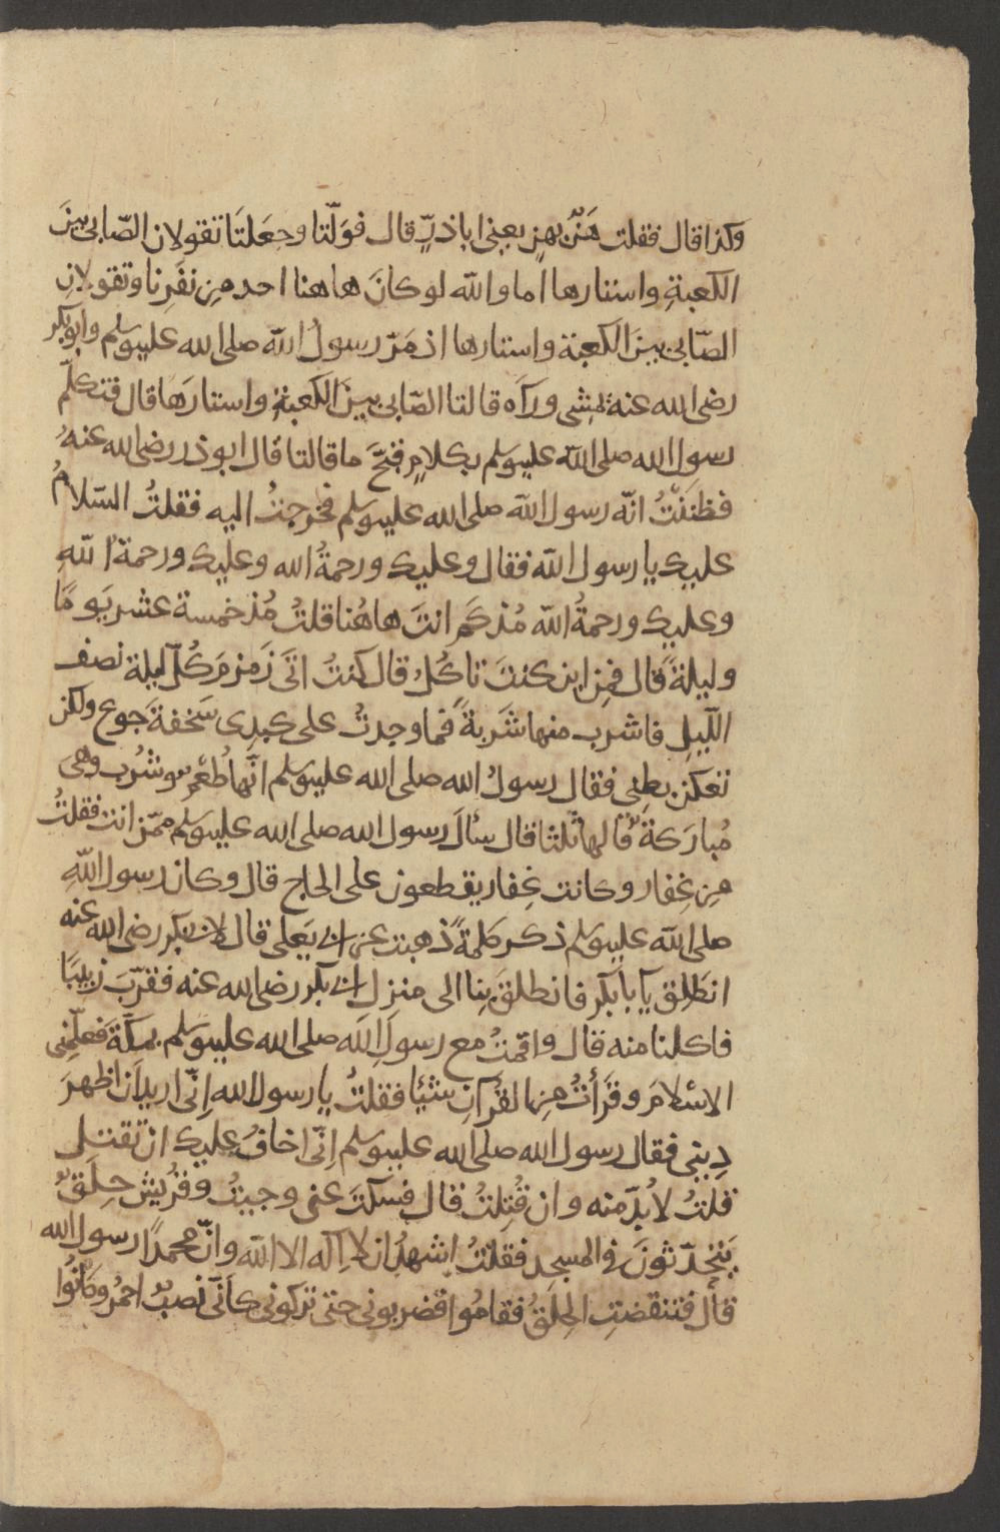 وكذا قال فقلت هَنٌ بهنٍ يعنى اباذرٍّ قال فوَلّتا وجعَلتَا تقولان الصّابى بينَ
الكعبةِ واستارها اما والله لو كانَ هاهنا احد مِن نفَرِنا وتقولانِ
الصّابى بينَ الكعبة واستارها اذ مَرّ رسولُ اللّه صلى الله عليه وسلم وابوبكر
رضى الله عنه يمشى ورآه قالتا الصّابى بينَ الكعبةِ واستارَها قال فتكلّم
رسول الله صلى اللّه عليه وسلم بكلامٍ قبّحَ ما قالتا قال ابو ذر رضى الله عنهُ
فظننتُ انّه رسول اللّه صلى الله عليه وسلم فخرجتُ اليه فقلتُ السّلامُ
عليك يا رسول اللّه فقال وعليك ورحمةُ الله وعليك ورحمة اللّهِ
وعليك ورحمةُ اللّه مُذ كَم انتَ هاهُنا قلتُ مُذ خمسة عشر يَومًا
وليلةً قال فمِن اين كنتَ تاكُلُ قال كنتُ اتَى زَمزمَ كُلّ ليلة نصف
اللّيلِ فاشرب منها شَربةً فما وجدتُ على كبدِى سَخفةَ جوع ولكن
تعكن بطنى فقال رسولُ الله صلى الله عليه وسلم انّها طُعْم وشُرب وهى
مُبارَكةٌ قالها ثلثا قال سئالَ رسول الله صلى الله عليه وسلم ممّن انت فقلتُ
مِن غِفار وكانت غِفار يقطعون على الحاج قال وكان رسول اللّهِ
صلى اللّه عليه وسلم ذكر كلمةً ذهبت عن ابى يَعلى قال لابى بكر رضى الله عنه
انطلِق يآ بابكر فانطلقَ بِنا الى منزل ابى بكر رضى الله عنه فقرّبَ زبيبًا
فاكلنا منه قال واقمتُ مع رسولِ اللّه صلى الله عليه وسلم بمكّةَ فعلّمنى
الاسْلامَ وقرَأتُ مِن القُرآنِ شئيا فقلتُ يا رسول الله اِنّى اريد اَن اظهرَ
دِينى فقال رسول الله صلى الله عليه وسلم اِنّى اخافُ عليك ان تقتل
قلتُ لابُدّ منه وان قُتِلتُ قال فسكتَ عنى وجيتُ وقُريش حِلَقٌ
يَتحدّثونَ فى المسجدِ فقلتُ اشهدُ ان لا اِلَه الا اللّه وانّ محمدًا رسول الله
قال فتنقضتِ الحِلَقُ فقامُوا فضربونى حتى تركونى كاَنّى نُصبٌ احمرُ وكانُوا